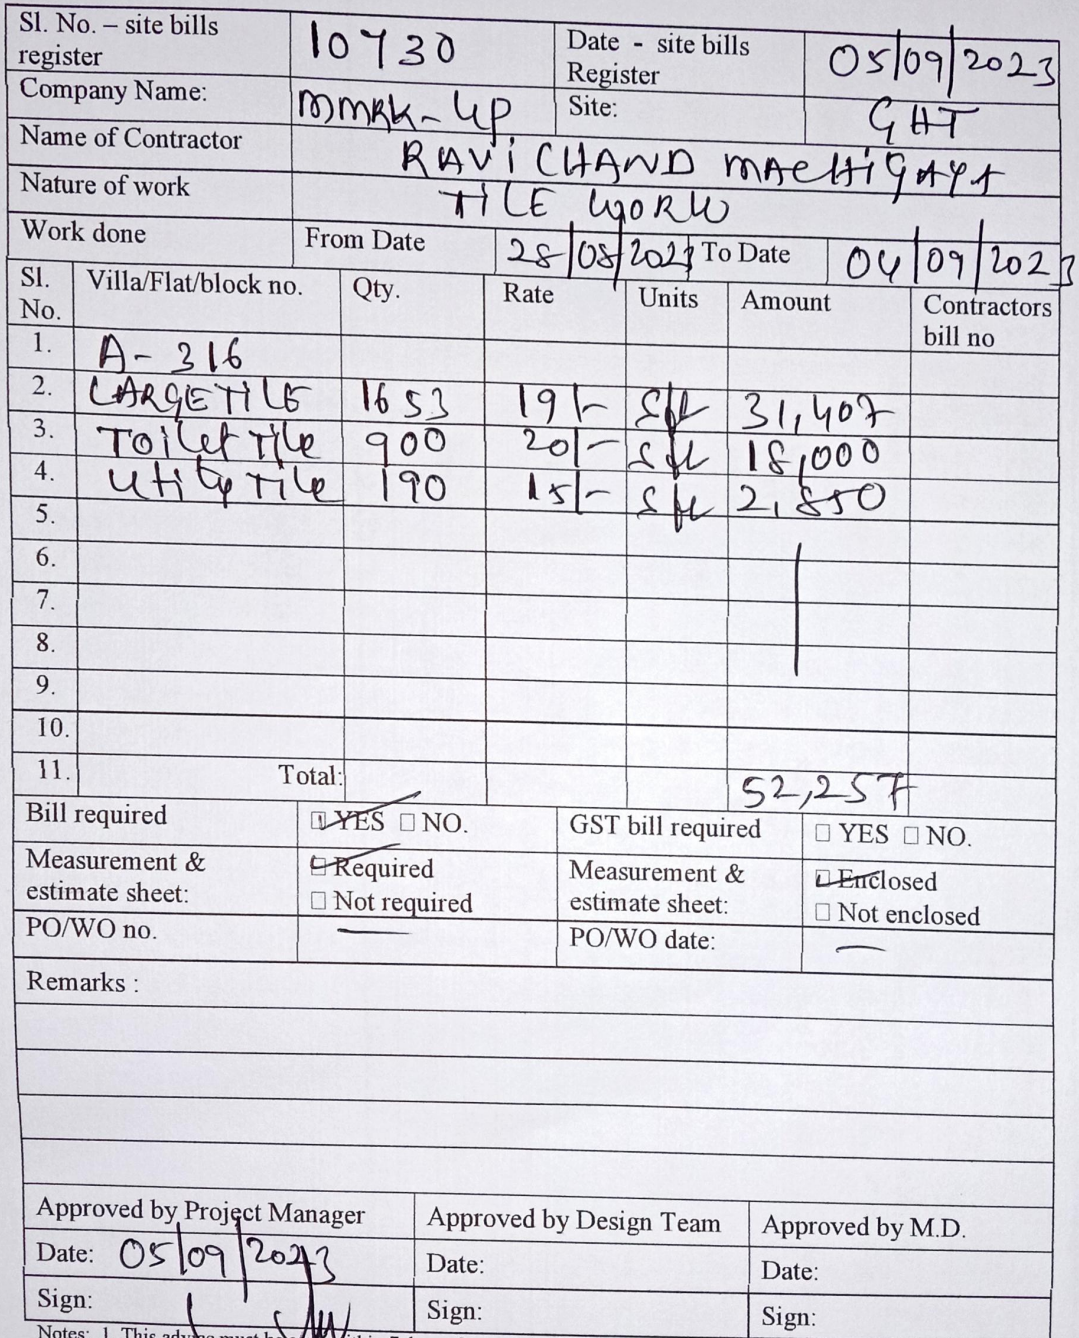 Sl. No. – site bills register 10730 Date - site bills Register 05/09/2023
Company Name: MMRK-UP Site: GHT
Name of Contractor RAVi CHAND MACHiGAYA
Nature of work TILE WORK
Work done From Date 28/08/2023 To Date 04/09/2023
Sl. No. Villa/Flat/block no. Qty. Rate Units Amount Contractors bill no
1. A-316
2. LARGE TILE 1653 19/- Sft 31,407
3. Toilet Tile 900 20/- Sft 18,000
4. Utility Tile 190 15/- Sft 2,850
5.
6.
7.
8.
9.
10.
11. Total: 52,257
Bill required ☑ YES □ NO. GST bill required □ YES □ NO.
Measurement & estimate sheet: ☑ Required □ Not required Measurement & estimate sheet: ☑ Enclosed □ Not enclosed
PO/WO no. — PO/WO date: —
Remarks :
Approved by Project Manager Approved by Design Team Approved by M.D.
Date: 05/09/2023 Date: Date:
Sign: Sign: Sign:
Notes: 1. This